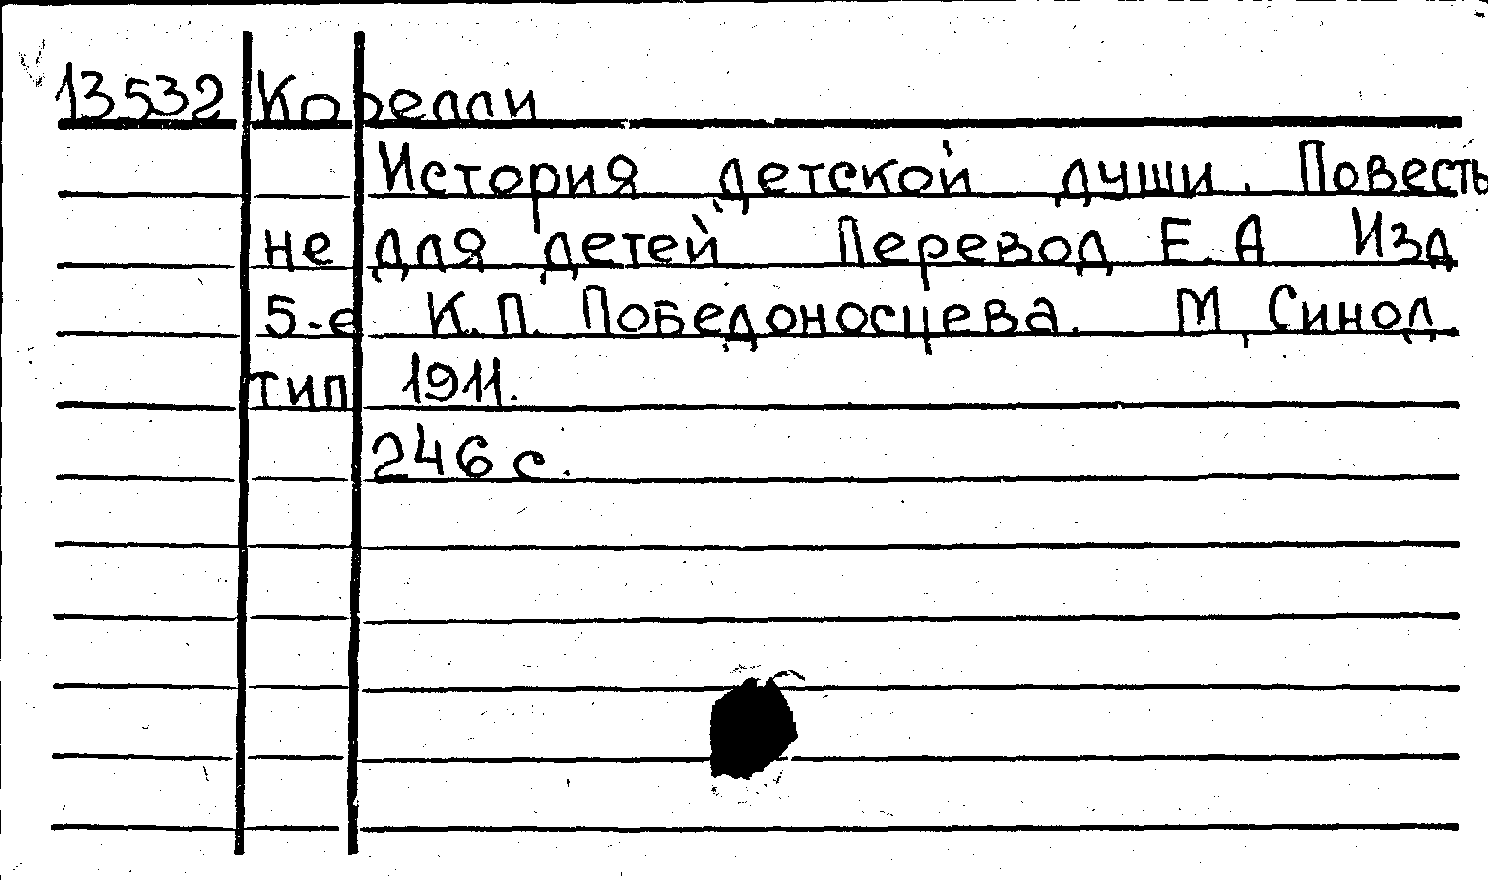 13532 Корелли
История детской души. Повесть
не для детей Перевод Е.А Изд
5-е К.П. Победоносцева. М, Синод.
тип 1911.
246 с.